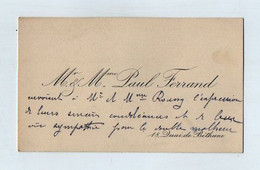 Mr & Mme Paul Ferrand
envoient à Mr et Mme l'expression
de leurs sincères condoléances et de leur
vive sympathie pour le malheur
18, Quai de Béthune